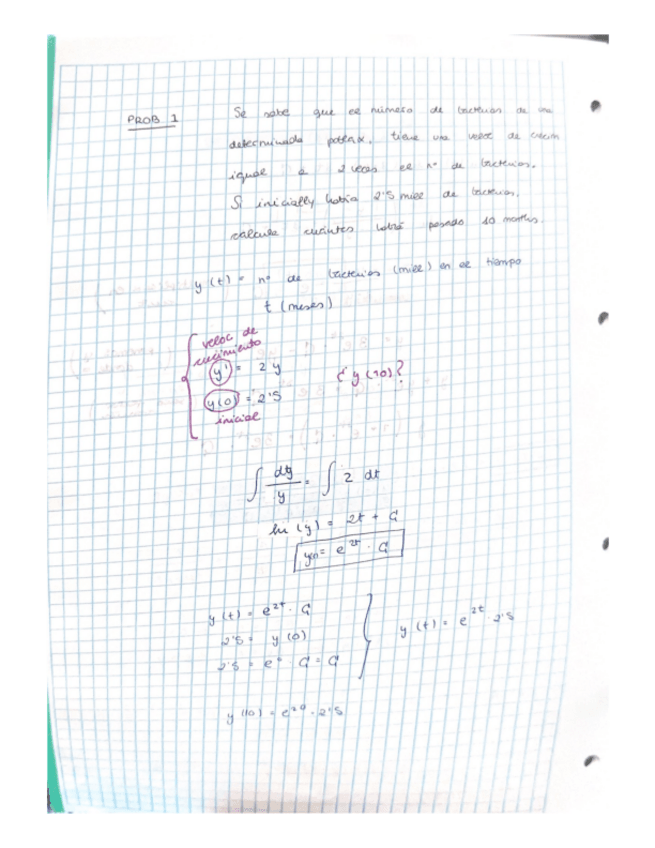 PROB 1
Se sabe que el número de bacterias de una
determinada tiene una veloc de crecim
igual a 2 veces el nº de bacterias.
Si inicially había 2'5 mill de bacterias,
calcula cuántas habrá pasado 10 months.
y(t) = nº de bacterias (mill) en el tiempo
t (meses)
veloc de
crecimiento
y' = 2y
¿ y(10)?
y(0) = 2'5
inicial
∫ dy/y = ∫ 2 dt
ln (y) = 2t + C
y(t) = e^2t · C
y(t) = e^2t · C
2'5 = y(0)
2'5 = e^0 · C = C
y(t) = e^2t · 2'5
y(10) = e^20 · 2'5